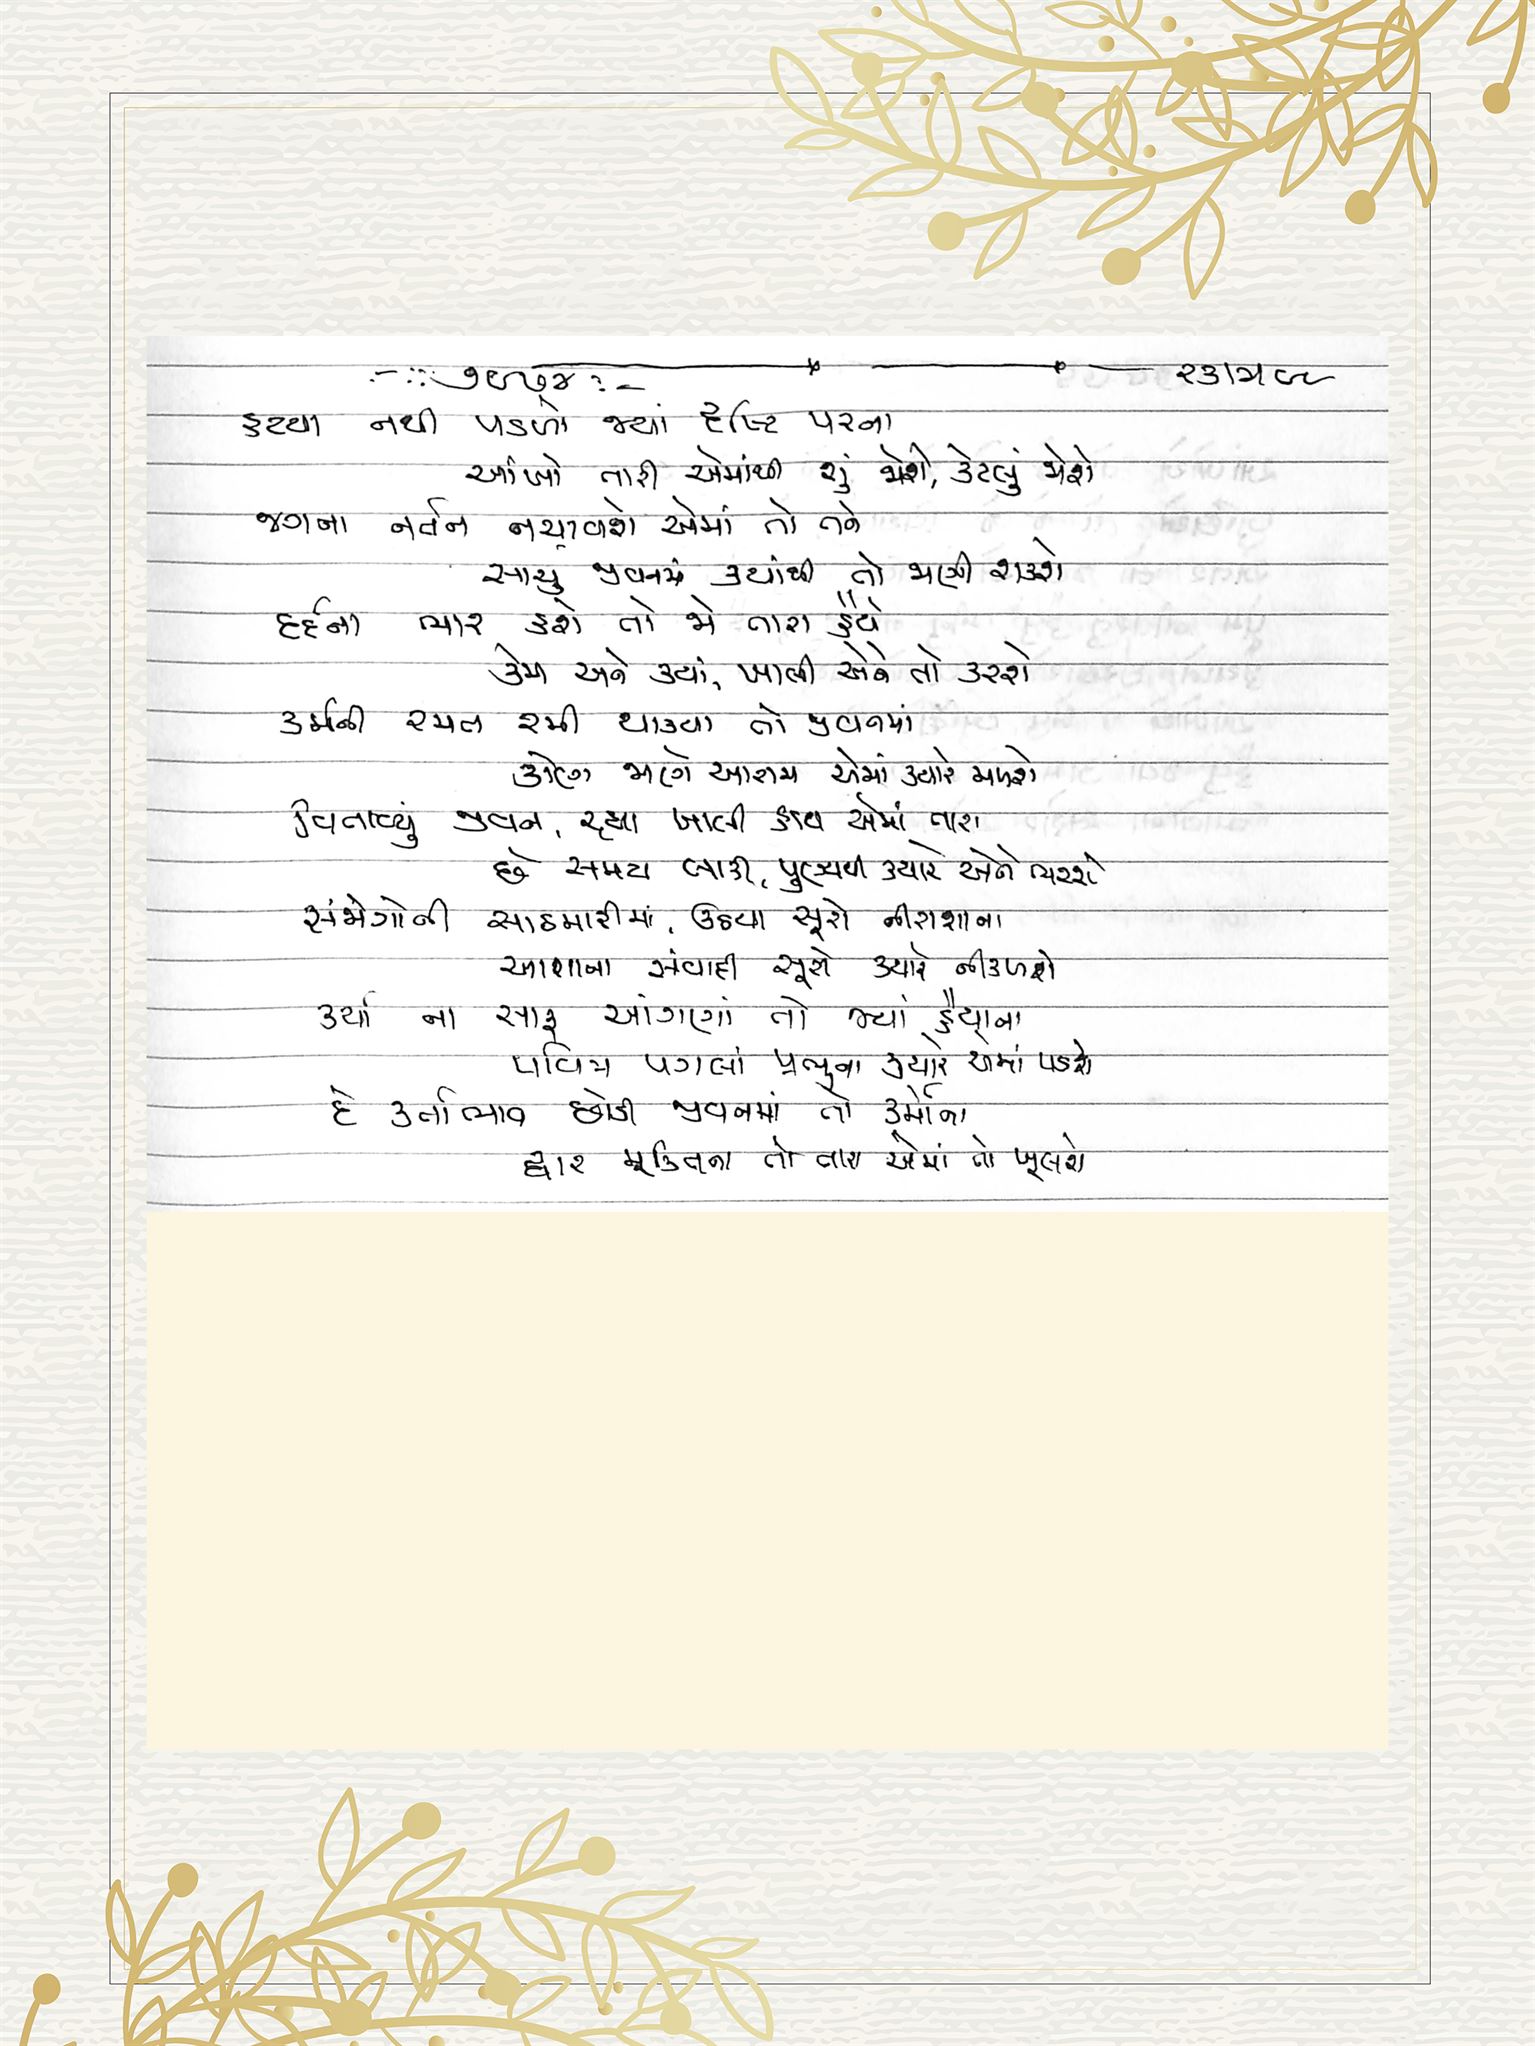 હટયા નથી પડળો જ્યાં દૃષ્ટિ પરના
આંખો તારી એમાંથી શું જોશે, કેટલું જોશે
જગના નર્તન નચાવશે એમાં તો તને
સાચુ જીવનમાં ક્યાંથી તો જાણી શકશે
દર્દના ભાર હશે તો જો તારા હૈયે
કેમ અને ક્યાં, ખાલી એને તો કરશે
કર્મની રમત રમી થાક્યા તો જીવનમાં
કોણ જાણે આરામ એમાં ક્યારે મળશે
વિતાવ્યું જીવન, રહ્યા ખાલી હાથ એમાં તારા
છે સમય બાકી, પુણ્યથી ક્યારે એને ભરશે
સંજોગોની સાઠમારીમાં, ઉઠયા સૂરો નીરાશાના
આશાના સંવાદી સૂરો ક્યારે નીકળશે
કર્યા ના સાફ આંગણાં તો જ્યાં હૈયાના
પવિત્ર પગલાં પ્રભુના ક્યારે એમાં પડશે
દે કર્તાભાવ છોડી જીવનમાં તો કર્મોના
દ્વાર મૂક્તિના તો તારા એમાં તો ખૂલશે